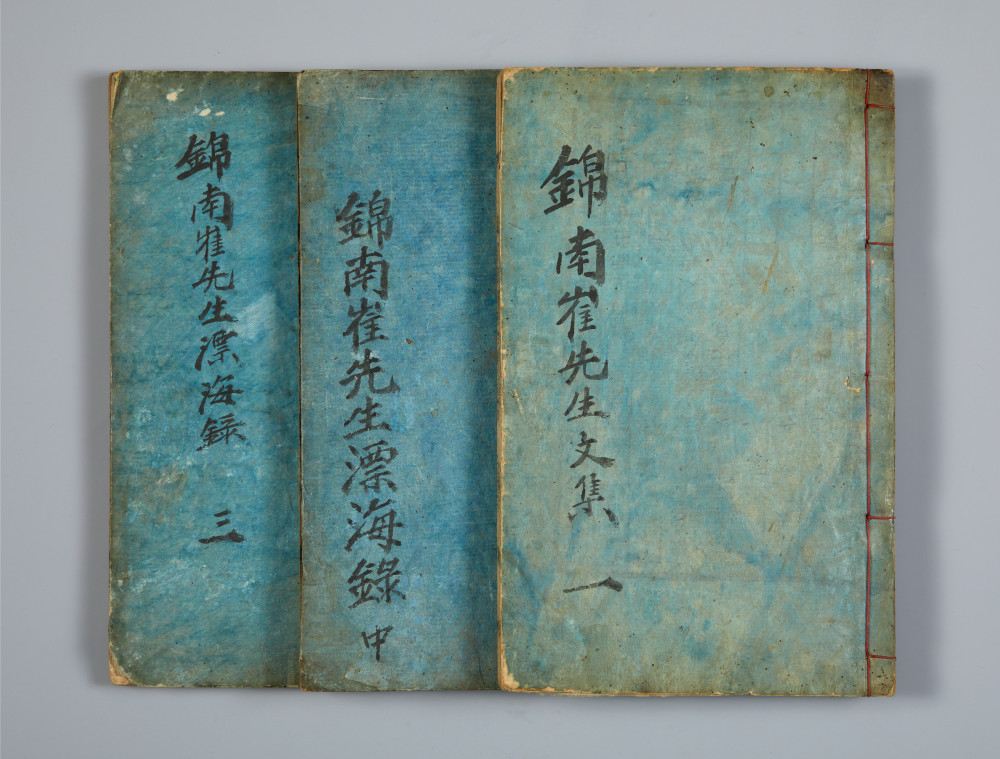 錦南崔先生文集 一
錦南崔先生漂海錄 中
錦南崔先生漂海録 三